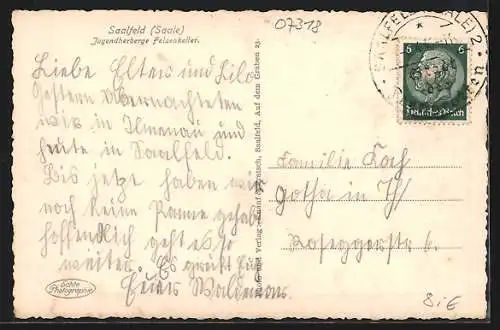 Saalfeld (Saale)
Jugendherberge Felsenkeller.
07318
Liebe Eltern und Lilo
Gestern übernachteten
wir in Ilmenau und
heute in Saalfeld.
Bis jetzt haben wir
noch keine Panne gehabt
hoffentlich geht es so
weiter. Es grüßt Euch
Euer Waldemar
echte
Photographie
Saalfeld, Auf dem Graben 23.
SAALFELD (SAALE) 2
5 6
Deutsches Reich
Familie Koch
Gotha in Th
Roseggerstr 6.
8.-€